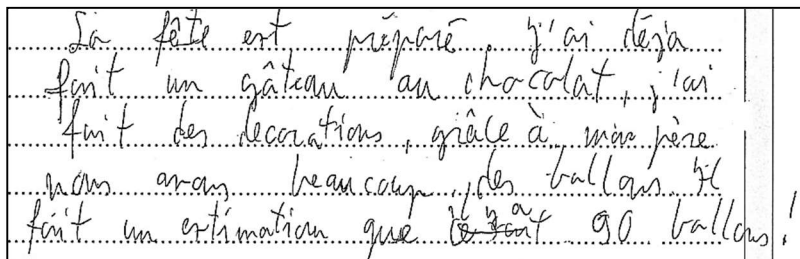 La fête est préparé, j'ai déja
fait un gâteau au chocolat, j'ai
fait des decorations, grâce à mon père
nous avons beaucoup des ballons. Il
fait un estimation que il y a 90 ballons!